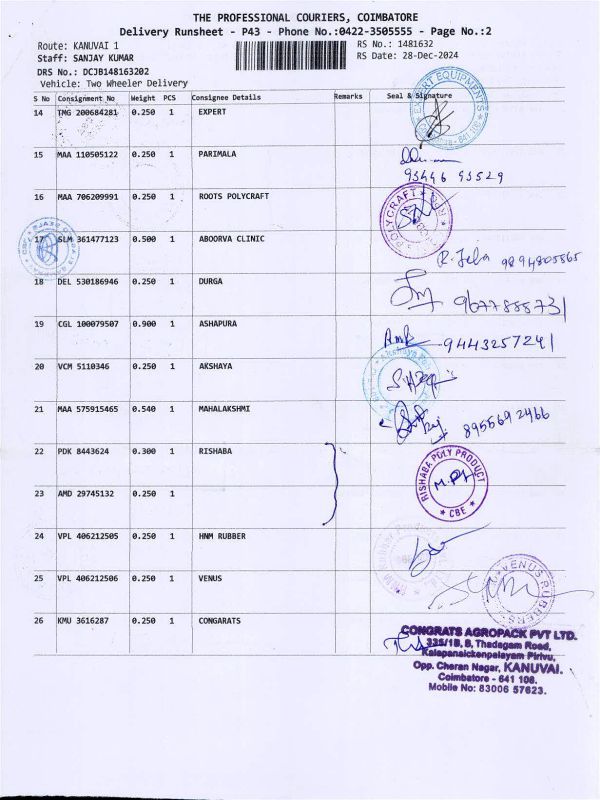 THE PROFESSIONAL COURIERS, COIMBATORE
Delivery Runsheet - P43 - Phone No.:0422-3505555 - Page No.:2
Route: KANUVAI 1
RS No.: 1481632
Staff: SANJAY KUMAR
RS Date: 28-Dec-2024
DRS No.: DCJB148163202
Vehicle: Two Wheeler Delivery
S No Consignment No Weight PCS Consignee Details Remarks Seal & Signature
14 TMG 200684281 0.250 1 EXPERT
EXPERT EQUIPMENTS
15 MAA 110505122 0.250 1 PARIMALA
16 MAA 706209991 0.250 1 ROOTS POLYCRAFT
POLYCRAFT
17 SLM 361477123 0.500 1 ABOORVA CLINIC
9894805565
18 DEL 530186946 0.250 1 DURGA
19 CGL 100079507 0.900 1 ASHAPURA
9443257241
20 VCM 5110346 0.250 1 AKSHAYA
21 MAA 575915465 0.540 1 MAHALAKSHMI
8955692466
22 PDK 8443624 0.300 1 RISHABA
RISHABA POLY PRODUCT
* CBE *
23 AMD 29745132 0.250 1
24 VPL 406212505 0.250 1 HNM RUBBER
25 VPL 406212506 0.250 1 VENUS
VENUS RUBBERS
26 KMU 3616287 0.250 1 CONGARATS
CONGRATS AGROPACK PVT LTD.
325/1B, B, Thadagam Road,
Kalapanaickenpalayam Pirivu,
Opp. Cheran Nagar, KANUVAI.
Coimbatore - 641 108.
Mobile No: 83006 57623.